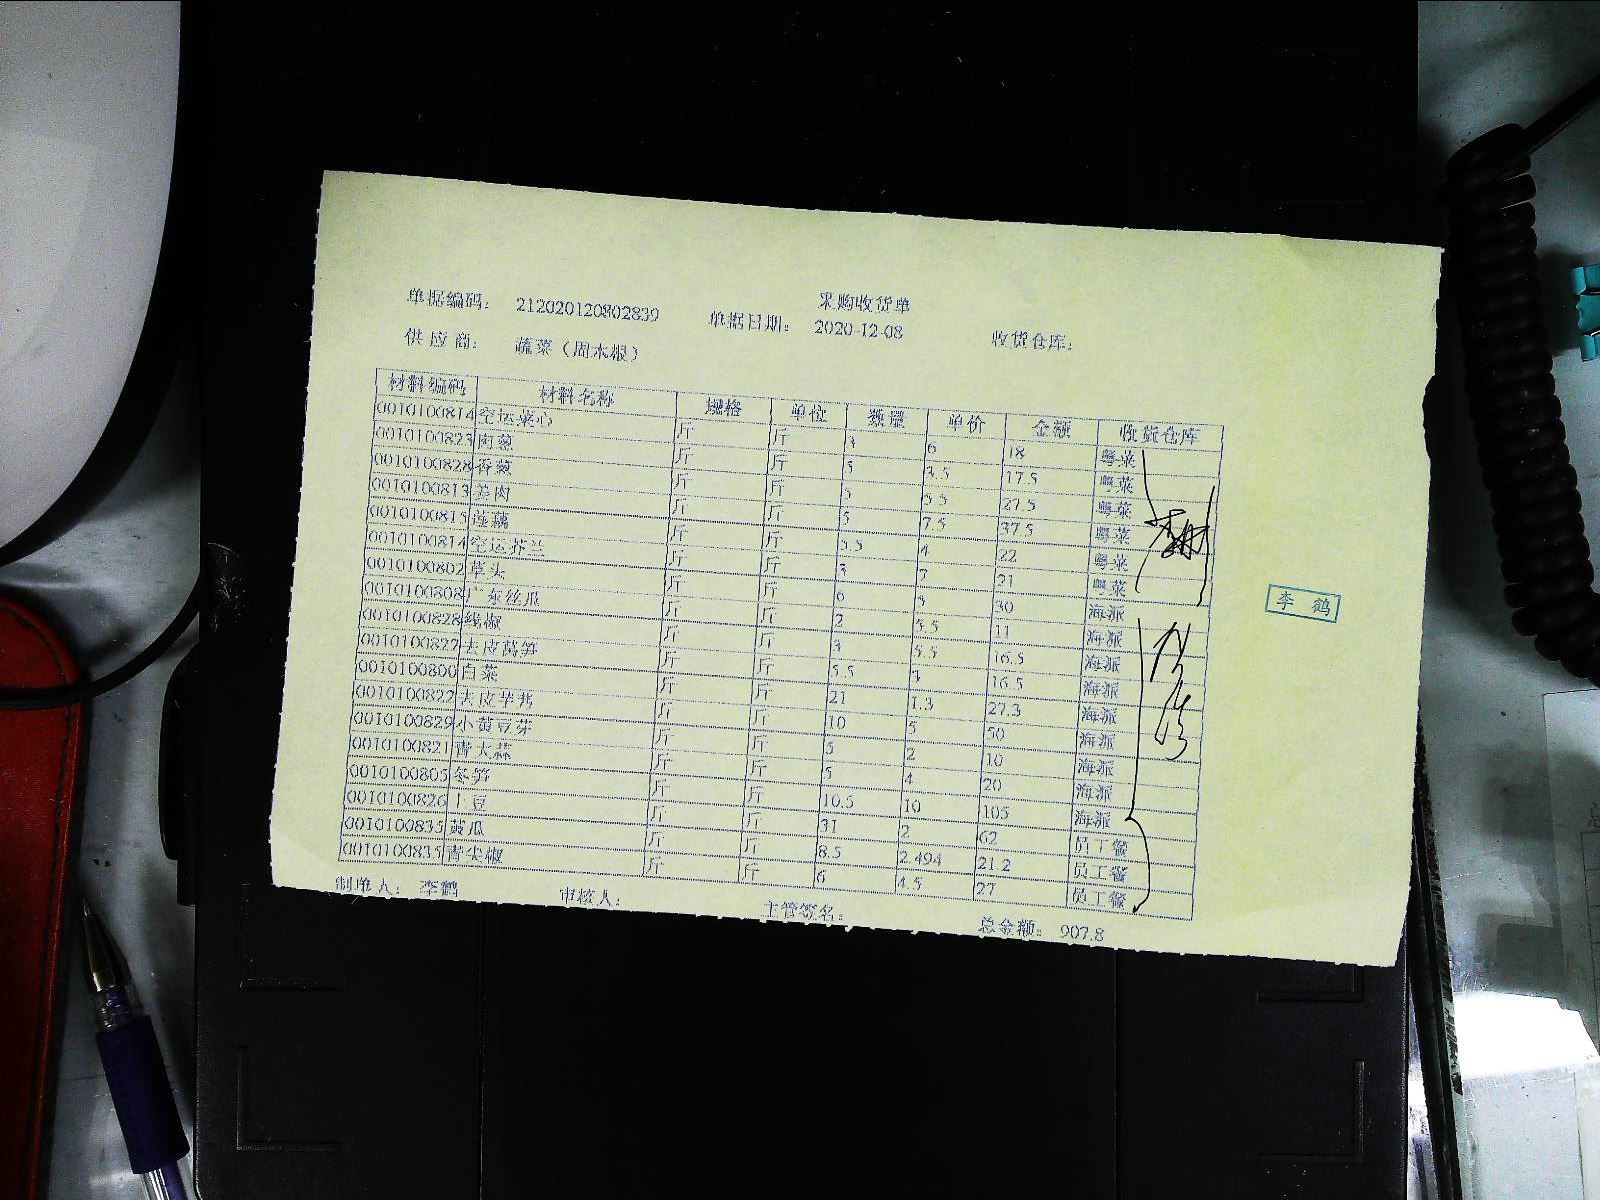 采购收货单
单据编码： 212020120802839 单据日期： 2020-12-08 收货仓库：
供应商： 蔬菜（周木根）
材料编码 材料名称 规格 单位 数量 单价 金额 收货仓库
0010100814 空运菜心 斤 斤 3 6 18 粤菜
0010100823 肉葱 斤 斤 5 3.5 17.5 粤菜
0010100828 香葱 斤 斤 5 5.5 27.5 粤菜
0010100813 姜肉 斤 斤 5 7.5 37.5 粤菜
0010100815 莲藕 斤 斤 5.5 4 22 粤菜
0010100814 空运芥兰 斤 斤 3 7 21 粤菜
0010100802 草头 斤 斤 6 5 30 海派
0010100808 广东丝瓜 斤 斤 2 5.5 11 海派
0010100828 线椒 斤 斤 3 5.5 16.5 海派
0010100827 去皮莴笋 斤 斤 5.5 3 16.5 海派
0010100800 白菜 斤 斤 21 1.3 27.3 海派
0010100822 去皮芋艿 斤 斤 10 5 50 海派
0010100829 小黄豆芽 斤 斤 5 2 10 海派
0010100821 青大蒜 斤 斤 5 4 20 海派
0010100805 冬笋 斤 斤 10.5 10 105 海派
0010100826 土豆 斤 斤 31 2 62 员工餐
0010100835 黄瓜 斤 斤 8.5 2.494 21.2 员工餐
0010100835 青尖椒 斤 斤 6 4.5 27 员工餐
李鹤
制单人： 李鹤 审核人： 主管签名： 总金额： 907.8